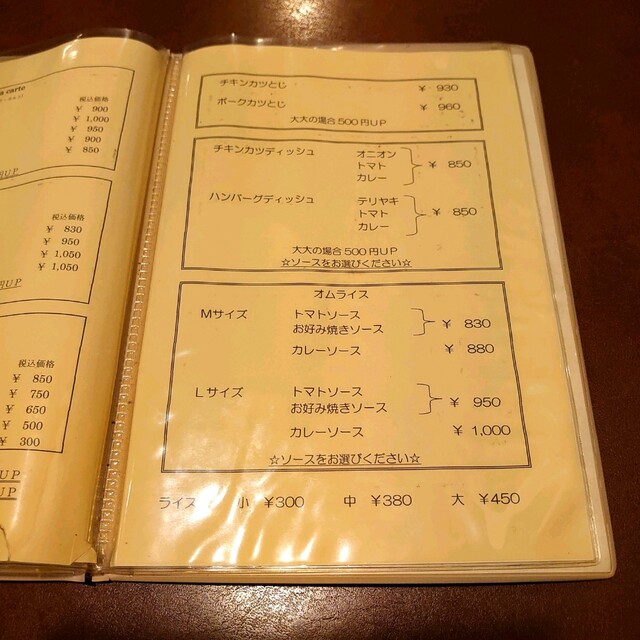 a carte
税込価格
¥ 900
¥ 1,000
¥ 950
¥ 900
¥ 850
円UP
税込価格
¥ 830
¥ 950
¥ 1,050
¥ 1,050
円UP
税込価格
¥ 850
¥ 750
¥ 650
¥ 500
¥ 300
UP
UP
チキンカツとじ ¥ 930
ポークカツとじ ¥ 960
大大の場合500円UP
チキンカツディッシュ オニオン
トマト ¥ 850
カレー
ハンバーグディッシュ テリヤキ
トマト ¥ 850
カレー
大大の場合500円UP
☆ソースをお選びください☆
オムライス
Mサイズ トマトソース
お好み焼きソース ¥ 830
カレーソース ¥ 880
Lサイズ トマトソース
お好み焼きソース ¥ 950
カレーソース ¥ 1,000
☆ソースをお選びください☆
ライス 小 ¥300 中 ¥380 大 ¥450